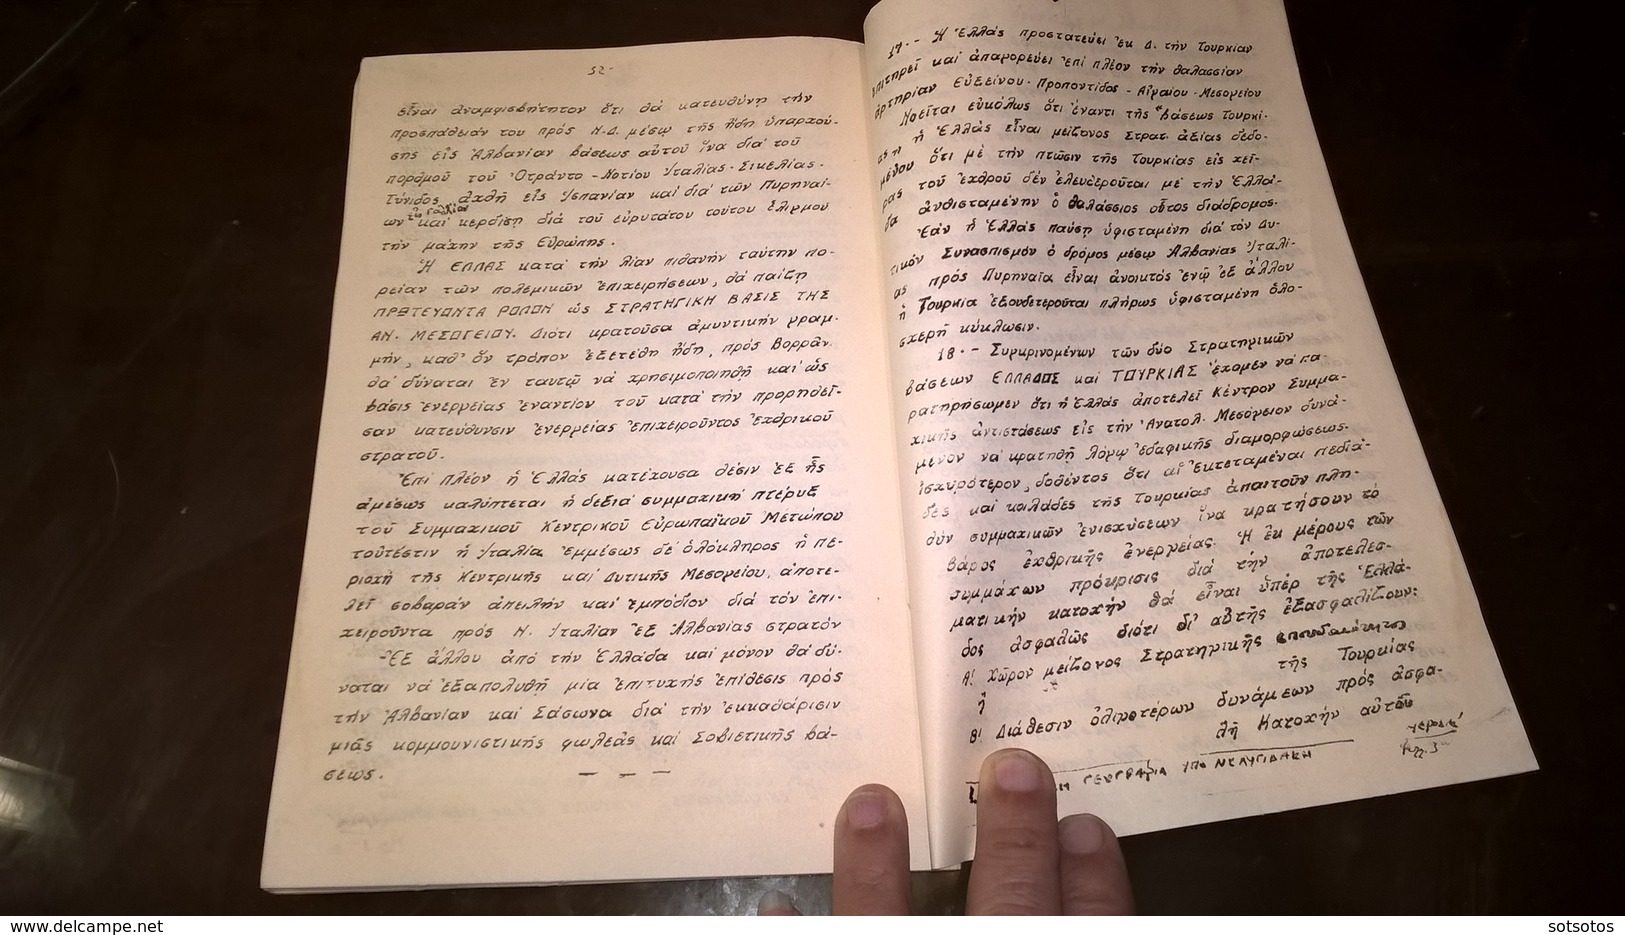 52-
εἶναι ἀναμφισβήτητον ὅτι θά κατευθύνῃ τήν
προσπάθειάν του πρός Ν.Δ. μέσῳ τῆς ἤδη ὑπαρχού-
σης εἰς Ἀλβανίαν βάσεως αὐτοῦ ἵνα διά τοῦ
πορθμοῦ τοῦ Ὀτράντο - Νοτίου Ἰταλίας - Σικελίας -
Τύνιδος ἀχθῇ εἰς Ἱσπανίαν καί διά τῶν Πυρηναί-
ων εἰς Γαλλίαν καί κερδίσῃ διά τοῦ εὐρυτάτου τούτου ἑλιγμοῦ
τήν μάχην τῆς Εὐρώπης.
Ἡ ΕΛΛΑΣ κατά τήν λίαν πιθανήν ταύτην πο-
ρείαν τῶν πολεμικῶν ἐπιχειρήσεων, θά παίξῃ
ΠΡΩΤΕΥΟΝΤΑ ΡΟΛΟΝ ὡς ΣΤΡΑΤΗΓΙΚΗ ΒΑΣΙΣ ΤΗΣ
ΑΝ. ΜΕΣΟΓΕΙΟΥ. Διότι κρατοῦσα ἀμυντικήν γραμ-
μήν, καθ' ὅν τρόπον ἐξετέθη ἤδη, πρός Βορρᾶν
θά δύναται ἐν ταυτῷ νά χρησιμοποιηθῇ καί ὡς
βάσις ἐνεργείας ἐναντίον τοῦ κατά τήν προρηθεῖ-
σαν κατεύθυνσιν ἐνεργείας ἐπιχειροῦντος ἐχθρικοῦ
στρατοῦ.
Ἐπί πλέον ἡ Ἑλλάς κατέχουσα θέσιν ἐξ ἧς
ἀμέσως καλύπτεται ἡ δεξιά συμμαχική πτέρυξ
τοῦ Συμμαχικοῦ Κεντρικοῦ Εὐρωπαϊκοῦ Μετώπου
τοὐτέστιν ἡ Ἰταλία ἐμμέσως δέ ὁλόκληρος ἡ πε-
ριοχή τῆς Κεντρικῆς καί Δυτικῆς Μεσογείου, ἀποτε-
λεῖ σοβαράν ἀπειλήν καί ἐμπόδιον διά τόν ἐπι-
χειροῦντα πρός Ν. Ἰταλίαν ἐξ Ἀλβανίας στρατόν
- Ἐξ ἄλλου ἀπό τήν Ἑλλάδα καί μόνον θά δύ-
ναται νά ἐξαπολυθῇ μία ἐπιτυχής ἐπίθεσις πρός
τήν Ἀλβανίαν καί Σάσωνα διά τήν ἐκκαθάρισιν
μιᾶς κομμουνιστικῆς φωλεᾶς καί Σοβιετικῆς βά-
σεως.
17.- Ἡ Ἑλλάς προστατεύει ἐκ Δ. τήν Τουρκίαν
ἐπιτηρεῖ καί ἀπαγορεύει ἐπί πλέον τήν θαλασσίαν
ἀρτηρίαν Εὐξείνου - Προποντίδος - Αἰγαίου - Μεσογείου
Νοεῖται εὐκόλως ὅτι ἔναντι τῆς "βάσεως Τουρκί-
ας" ἡ Ἑλλάς εἶναι μείζονος Στρατ. ἀξίας δεδο-
μένου ὅτι μέ τήν πτῶσιν τῆς Τουρκίας εἰς χεῖ-
ρας τοῦ ἐχθροῦ δέν ἐλευθεροῦται μέ τήν Ἑλλά-
δα ἀνθισταμένην ὁ θαλάσσιος οὗτος διάδρομος.
Ἐάν ἡ Ἑλλάς παύσῃ ὑφισταμένη διά τόν Δυ-
τικόν Συνασπισμόν ὁ δρόμος μέσῳ Ἀλβανίας Ἰταλί-
ας πρός Πυρηναῖα εἶναι ἀνοικτός ἐνῷ ἐξ ἄλλου
ἡ Τουρκία ἐξουδετεροῦται πλήρως ὑφισταμένη ὁλο-
σχερῆ κύκλωσιν.
18.- Συγκρινομένων τῶν δύο Στρατηγικῶν
βάσεων ΕΛΛΑΔΟΣ καί ΤΟΥΡΚΙΑΣ ἔχομεν νά πα-
ρατηρήσωμεν ὅτι ἡ Ἑλλάς ἀποτελεῖ Κέντρον Συμμα-
χικῆς ἀντιστάσεως εἰς τήν Ἀνατολ. Μεσόγειον δυνά-
μενον νά κρατηθῇ λόγῳ ἐδαφικῆς διαμορφώσεως
ἰσχυρότερον, δοθέντος ὅτι αἱ ἐκτεταμέναι πεδιά-
δες καί κοιλάδες τῆς Τουρκίας ἀπαιτοῦν πλη-
θύν συμμαχικῶν ἐνισχύσεων ἵνα κρατήσουν τό
βάρος ἐχθρικῆς ἐνεργείας. Ἡ ἐκ μέρους τῶν
συμμάχων πρόκρισις διά τήν ἀποτελεσ-
ματικήν κατοχήν θά εἶναι ὑπέρ τῆς Ἑλλά-
δος ἀσφαλῶς διότι δι' αὐτῆς ἐξασφαλίζουν:
Α! Χῶρον μείζονος Στρατηγικῆς σπουδαιότητος
ἤ τῆς Τουρκίας
Β! Διάθεσιν ὀλιγοτέρων δυνάμεων πρός ἀσφα-
λῆ Κατοχήν αὐτοῦ
ΓΕΩΓΡΑΦΙΑ ΥΠΟ
sotsotos
www.delcampe.net